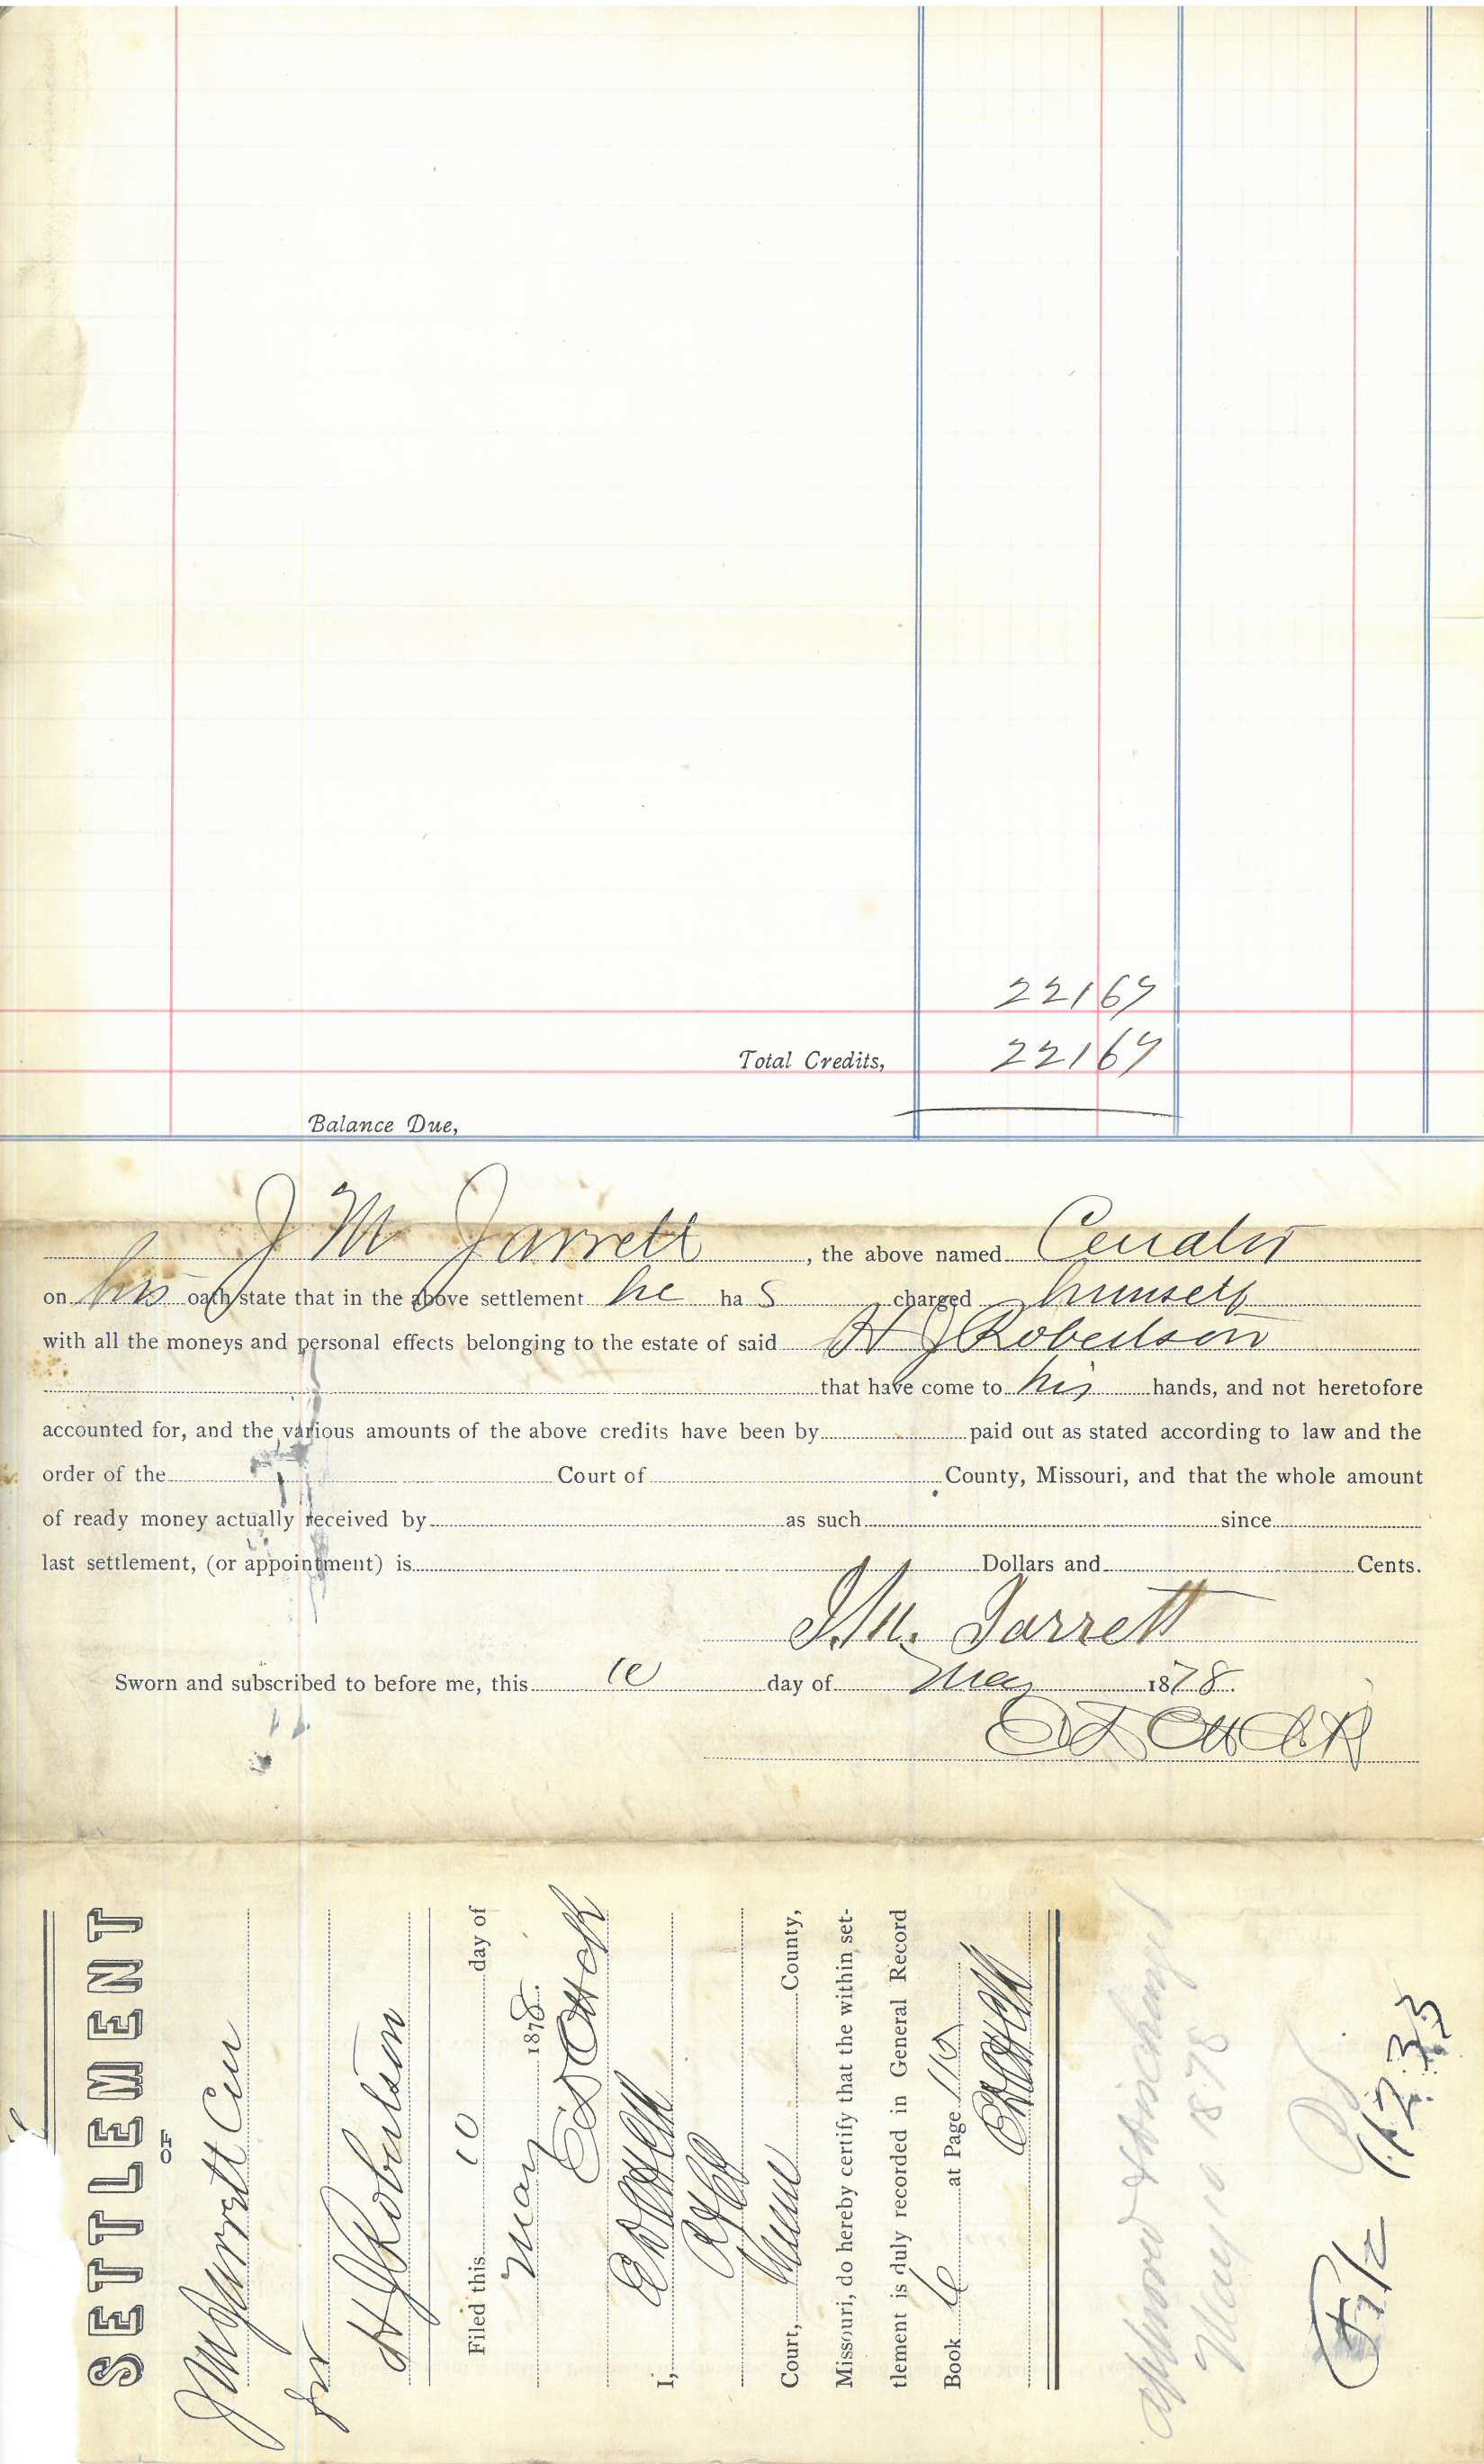 221 67
Total Credits, 221 67
Balance Due,
J M Jarrett, the above named Curator
on his oath state that in the above settlement he ha s charged himself
with all the moneys and personal effects belonging to the estate of said H J Robertson
that have come to his hands, and not heretofore
accounted for, and the various amounts of the above credits have been by paid out as stated according to law and the
order of the Court of County, Missouri, and that the whole amount
of ready money actually received by as such since
last settlement, (or appointment) is Dollars and Cents.
J. M. Jarrett
Sworn and subscribed to before me, this 10 day of May 1878.
SETTLEMENT
OF
J M Jarrett Cur
for
H J Robertson
Filed this 10 day of
May 1878.
I,
Court, County,
Missouri, do hereby certify that the within set-
tlement is duly recorded in General Record
Book 6 at Page 115
approved & discharged
May 10 1878
File